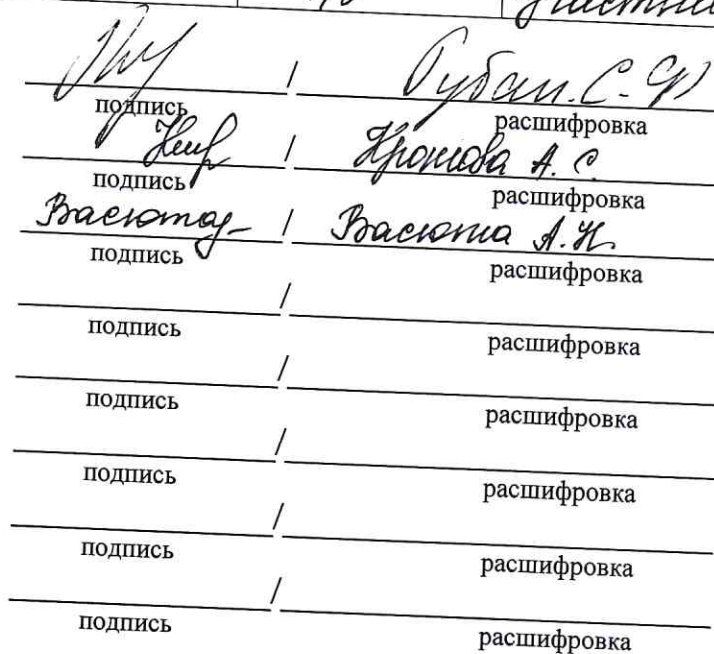 / Губан. С. Ф
подпись расшифровка
/ А. С.
подпись расшифровка
Васюта / Васюта А. Н.
подпись расшифровка
/
подпись расшифровка
/
подпись расшифровка
/
подпись расшифровка
/
подпись расшифровка
/
подпись расшифровка